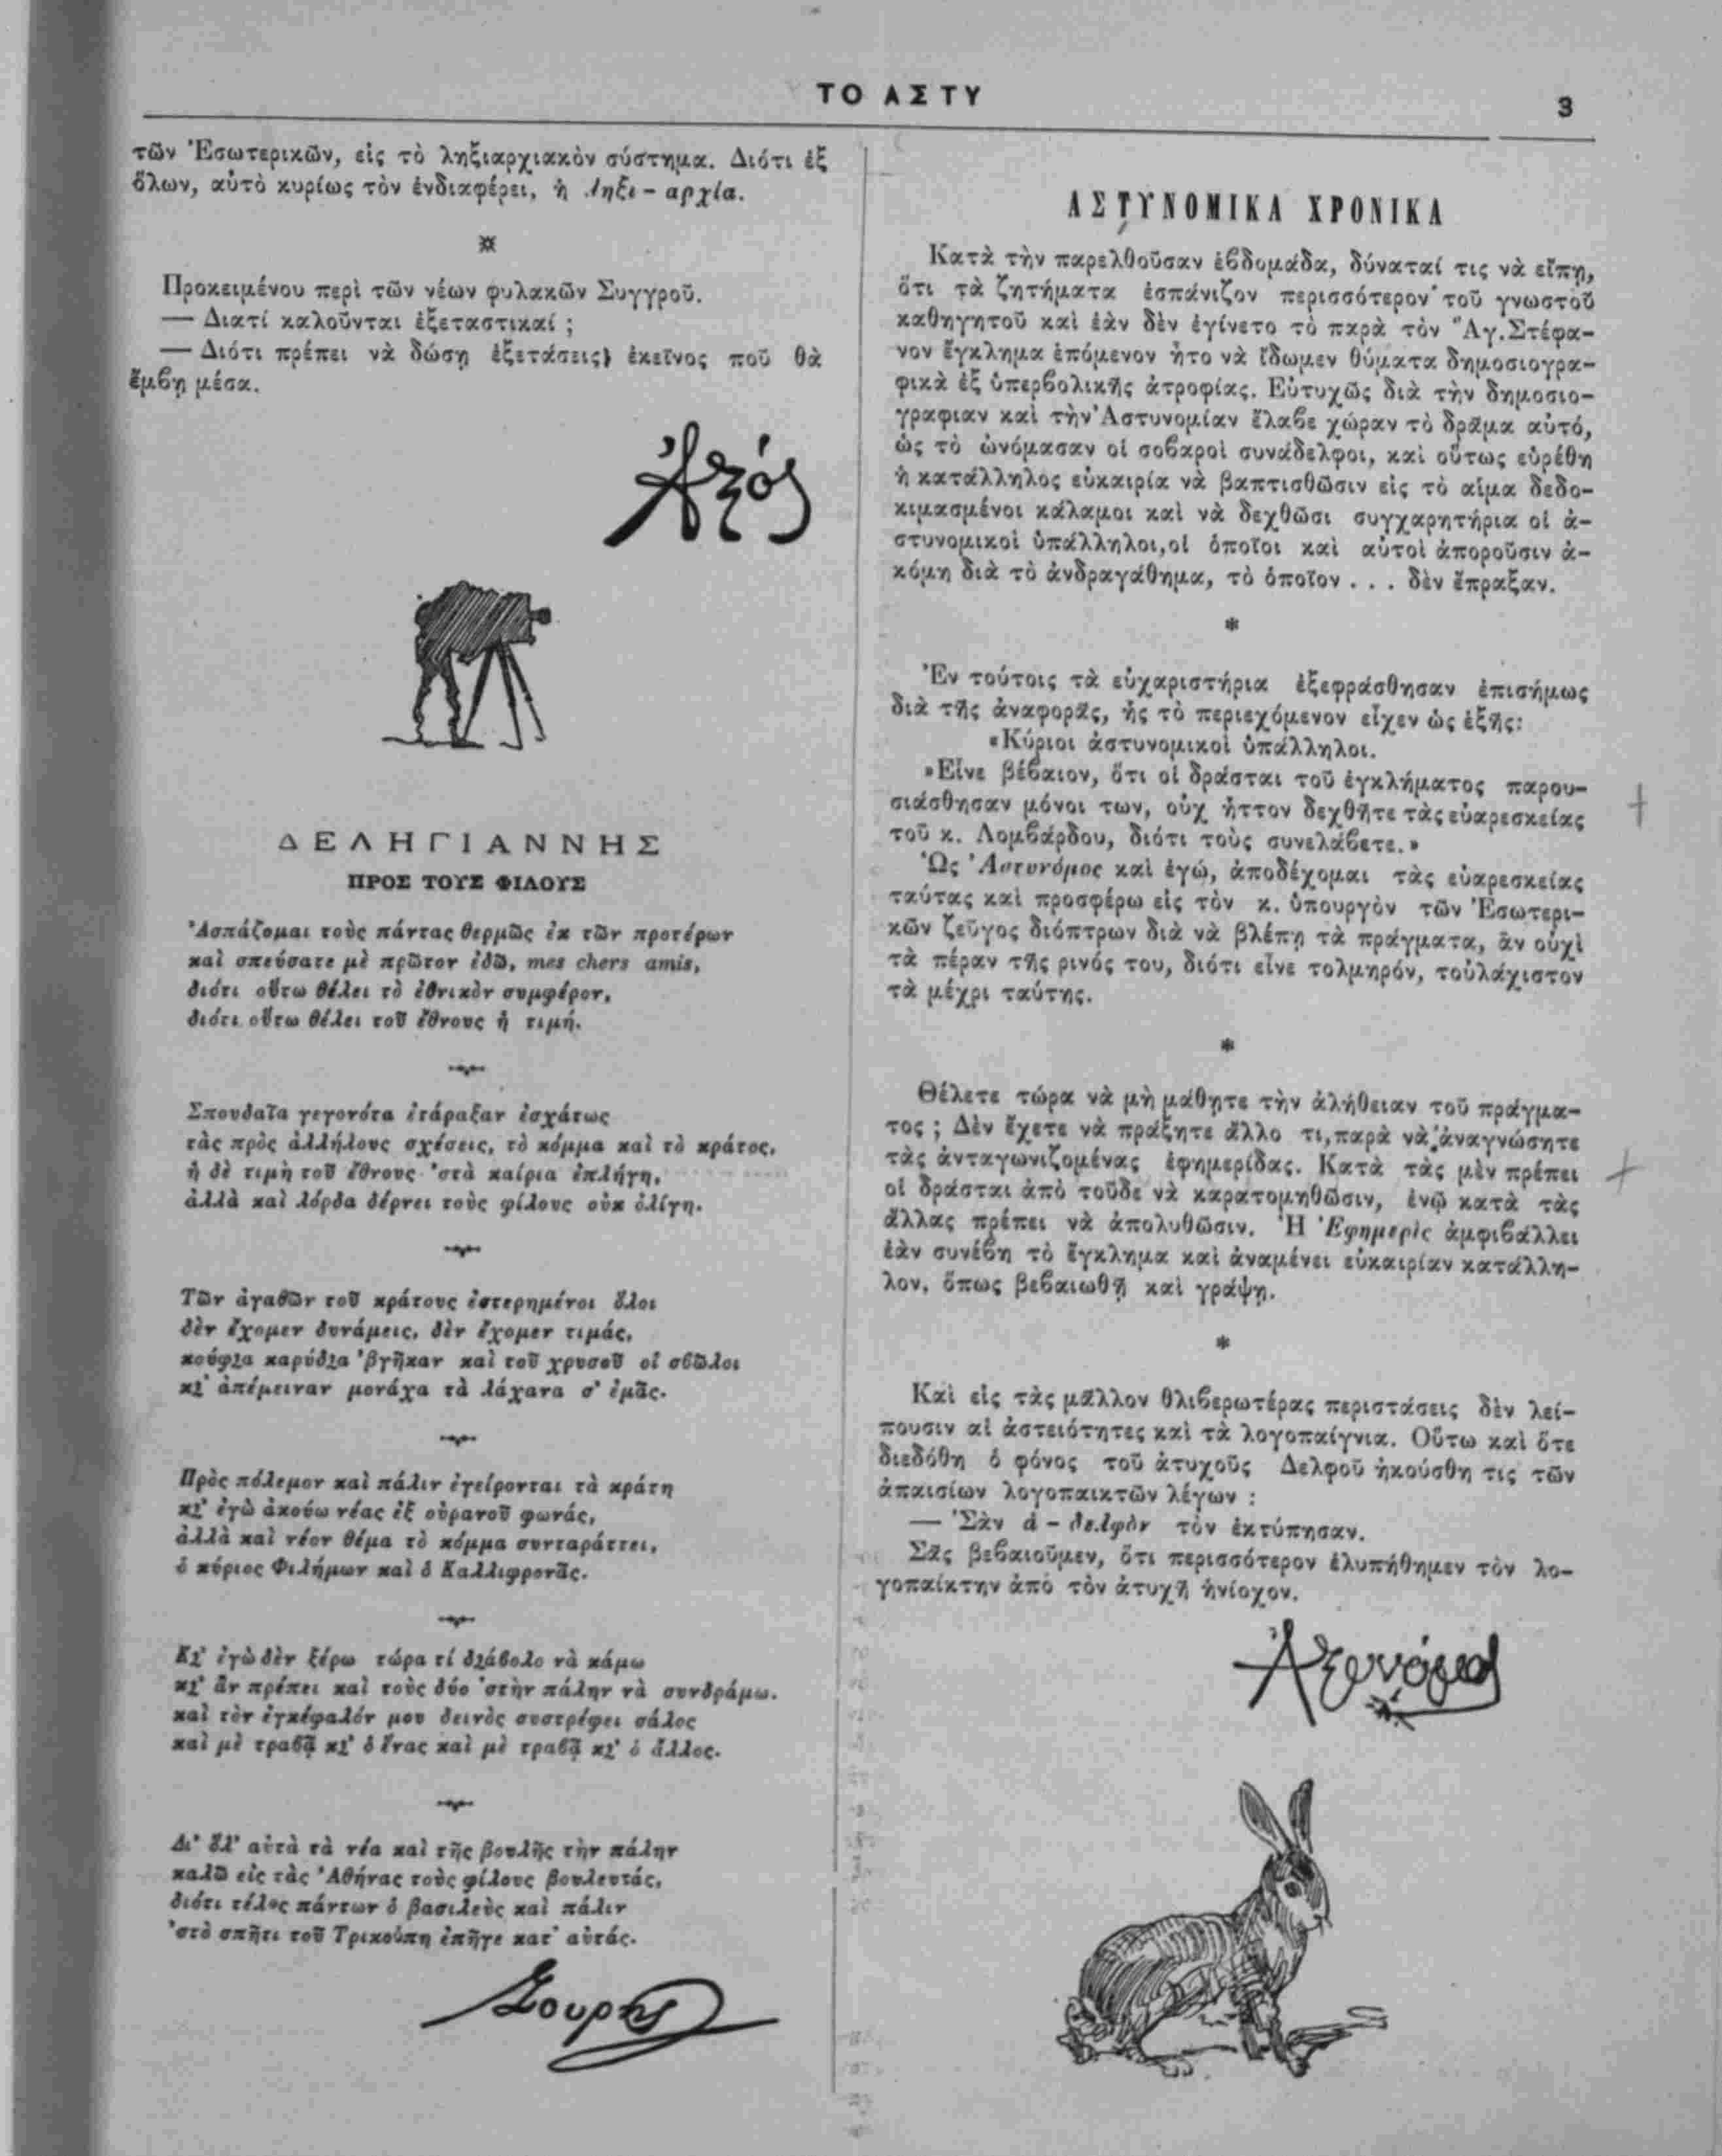 ΤΟ ΑΣΤΥ
3
τῶν Ἐσωτερικῶν, εἰς τὸ ληξιαρχιακὸν σύστημα. Διότι ἐξ
ὅλων, αὐτὸ κυρίως τὸν ἐνδιαφέρει, ἡ ληξι – αρχία.
Προκειμένου περὶ τῶν νέων φυλακῶν Συγγροῦ.
— Διατί καλοῦνται ἐξεταστικαί ;
— Διότι πρέπει νὰ δώσῃ ἐξετάσεις ἐκεῖνος ποῦ θὰ
ἔμβῃ μέσα.
Ἀστός
ΔΕΛΗΓΙΑΝΝΗΣ
ΠΡΟΣ ΤΟΥΣ ΦΙΛΟΥΣ
Ἀσπάζομαι τοὺς πάντας θερμῶς ἐκ τῶν προτέρων
καὶ σπεύσατε μὲ πρῶτον ἐδῶ, mes chers amis,
διότι οὕτω θέλει τὸ ἐθνικὸν συμφέρον,
διότι οὕτω θέλει τοῦ ἔθνους ἡ τιμή.
Σπουδαῖα γεγονότα ἐτάραξαν ἐσχάτως
τὰς πρὸς ἀλλήλους σχέσεις, τὸ κόμμα καὶ τὸ κράτος,
ἡ δὲ τιμὴ τοῦ ἔθνους 'στὰ καίρια ἐπλήγη,
ἀλλὰ καὶ λόρδα δέρνει τοὺς φίλους οὐκ ὀλίγη.
Τῶν ἀγαθῶν τοῦ κράτους ἐστερημένοι ὅλοι
δὲν ἔχομεν δυνάμεις, δὲν ἔχομεν τιμάς,
κούφια καρύδια 'βγῆκαν καὶ τοῦ χρυσοῦ οἱ σβῶλοι
κι' ἀπέμειναν μονάχα τὰ λάχανα σ' ἐμᾶς.
Πρὸς πόλεμον καὶ πάλιν ἐγείρονται τὰ κράτη
κι' ἐγὼ ἀκούω νέας ἐξ οὐρανοῦ φωνάς,
ἀλλὰ καὶ νέον θέμα τὸ κόμμα συνταράττει,
ὁ κύριος Φιλήμων καὶ ὁ Καλλιφρονᾶς.
Κι' ἐγὼ δὲν ξέρω τώρα τί διάβολο νὰ κάμω
κι' ἂν πρέπει καὶ τοὺς δύο 'στὴν πάλην νὰ συνδράμω.
καὶ τὸν ἐγκέφαλόν μου δεινὸς συστρέφει σάλος
καὶ μὲ τραβᾷ κι' ὁ ἕνας καὶ μὲ τραβᾷ κι' ὁ ἄλλος.
Δι' ὅλ' αὐτὰ τὰ νέα καὶ τῆς βουλῆς τὴν πάλην
καλῶ εἰς τὰς Ἀθήνας τοὺς φίλους βουλευτάς,
διότι τέλος πάντων ὁ βασιλεὺς καὶ πάλιν
'στὸ σπῆτι τοῦ Τρικούπη ἐπῆγε κατ' αὐτάς.
Σουρῆς
ΑΣΤΥΝΟΜΙΚΑ ΧΡΟΝΙΚΑ
Κατὰ τὴν παρελθοῦσαν ἑβδομάδα, δύναταί τις νὰ εἴπῃ,
ὅτι τὰ ζητήματα ἐσπάνιζον περισσότερον τοῦ γνωστοῦ
καθηγητοῦ καὶ ἐὰν δὲν ἐγίνετο τὸ παρὰ τὸν Ἅγ. Στέφα-
νον ἔγκλημα ἑπόμενον ἦτο νὰ ἴδωμεν θύματα δημοσιογρα-
φικὰ ἐξ ὑπερβολικῆς ἀτροφίας. Εὐτυχῶς διὰ τὴν δημοσιο-
γραφιαν καὶ τὴν Ἀστυνομίαν ἔλαβε χώραν τὸ δρᾶμα αὐτό,
ὡς τὸ ὠνόμασαν οἱ σοβαροὶ συνάδελφοι, καὶ οὕτως εὑρέθη
ἡ κατάλληλος εὐκαιρία νὰ βαπτισθῶσιν εἰς τὸ αἷμα δεδο-
κιμασμένοι κάλαμοι καὶ νὰ δεχθῶσι συγχαρητήρια οἱ ἀ-
στυνομικοὶ ὑπάλληλοι, οἱ ὁποῖοι καὶ αὐτοὶ ἀποροῦσιν ἀ-
κόμη διὰ τὸ ἀνδραγάθημα, τὸ ὁποῖον . . . δὲν ἔπραξαν.
*
Ἐν τούτοις τὰ εὐχαριστήρια ἐξεφράσθησαν ἐπισήμως
διὰ τῆς ἀναφορᾶς, ἧς τὸ περιεχόμενον εἶχεν ὡς ἑξῆς:
«Κύριοι ἀστυνομικοὶ ὑπάλληλοι.
»Εἶνε βέβαιον, ὅτι οἱ δράσται τοῦ ἐγκλήματος παρου-
σιάσθησαν μόνοι των, οὐχ ἧττον δεχθῆτε τὰς εὐαρεσκείας
τοῦ κ. Λομβάρδου, διότι τοὺς συνελάβετε.»
Ὡς Ἀστυνόμος καὶ ἐγώ, ἀποδέχομαι τὰς εὐαρεσκείας
ταύτας καὶ προσφέρω εἰς τὸν κ. ὑπουργὸν τῶν Ἐσωτερι-
κῶν ζεῦγος διόπτρων διὰ νὰ βλέπῃ τὰ πράγματα, ἂν οὐχὶ
τὰ πέραν τῆς ρινός του, διότι εἶνε τολμηρόν, τοὐλάχιστον
τὰ μέχρι ταύτης.
*
Θέλετε τώρα νὰ μὴ μάθητε τὴν ἀλήθειαν τοῦ πράγμα-
τος ; Δὲν ἔχετε νὰ πράξητε ἄλλο τι, παρὰ νὰ ἀναγνώσητε
τὰς ἀνταγωνιζομένας ἐφημερίδας. Κατὰ τὰς μὲν πρέπει
οἱ δράσται ἀπὸ τοῦδε νὰ καρατομηθῶσιν, ἐνῷ κατὰ τὰς
ἄλλας πρέπει νὰ ἀπολυθῶσιν. Ἡ Ἐφημερὶς ἀμφιβάλλει
ἐὰν συνέβη τὸ ἔγκλημα καὶ ἀναμένει εὐκαιρίαν κατάλλη-
λον, ὅπως βεβαιωθῇ καὶ γράψῃ.
*
Καὶ εἰς τὰς μᾶλλον θλιβερωτέρας περιστάσεις δὲν λεί-
πουσιν αἱ ἀστειότητες καὶ τὰ λογοπαίγνια. Οὕτω καὶ ὅτε
διεδόθη ὁ φόνος τοῦ ἀτυχοῦς Δελφοῦ ἠκούσθη τις τῶν
ἀπαισίων λογοπαικτῶν λέγων :
— Σὰν ἀ – δελφὸν τὸν ἐκτύπησαν.
Σᾶς βεβαιοῦμεν, ὅτι περισσότερον ἐλυπήθημεν τὸν λο-
γοπαίκτην ἀπὸ τὸν ἀτυχῆ ἡνίοχον.
Ἀστυνόμος